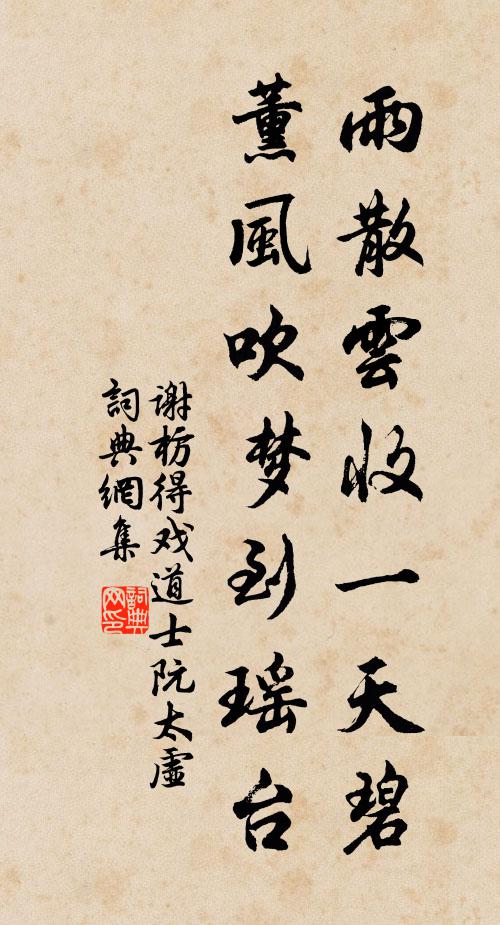 雨散雲收一天碧
薰風吹梦到瑶台
谢枋得戏道士阮太虛
詞典網集
詞典网印